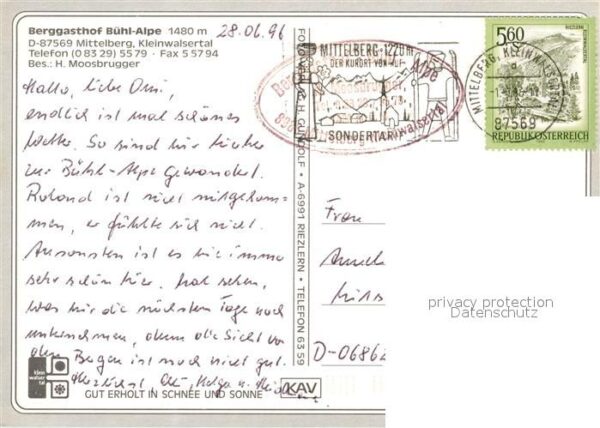 Berggasthof Bühl-Alpe 1480 m
D-87569 Mittelberg, Kleinwalsertal
Telefon (0 83 29) 55 79 · Fax 5 57 94
Bes.: H. Moosbrugger
28.06.96
Hallo, liebe Omi,
endlich ist mal schönes
Wetter. So sind wir heute
zur Bühl-Alpe gewandert.
Roland ist nicht mitgekom-
men, er fühlte sich nicht.
Ansonsten ist es wie immer
sehr schön hier. Mal sehen,
was wir die nächsten Tage noch
unternehmen, denn die Sicht von
den Bergen ist noch nicht gut.
Herzlichst Helga u.
klein
walser
tal
GUT ERHOLT IN SCHNEE UND SONNE
H. GUNDOLF • A-6991 RIEZLERN • TELEFON 63 59
KAV
MITTELBERG • 1220 m
DER KURORT
SONDERTARIF
walsertal
MITTELBERG, KLEINWALSERTAL
87569
5.60
REPUBLIK ÖSTERREICH
Frau
D-06862
privacy protection
Datenschutz